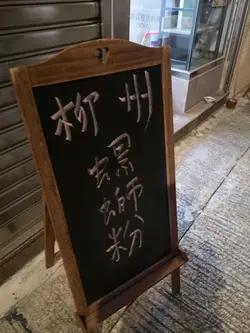 柳州
螺
螄
粉